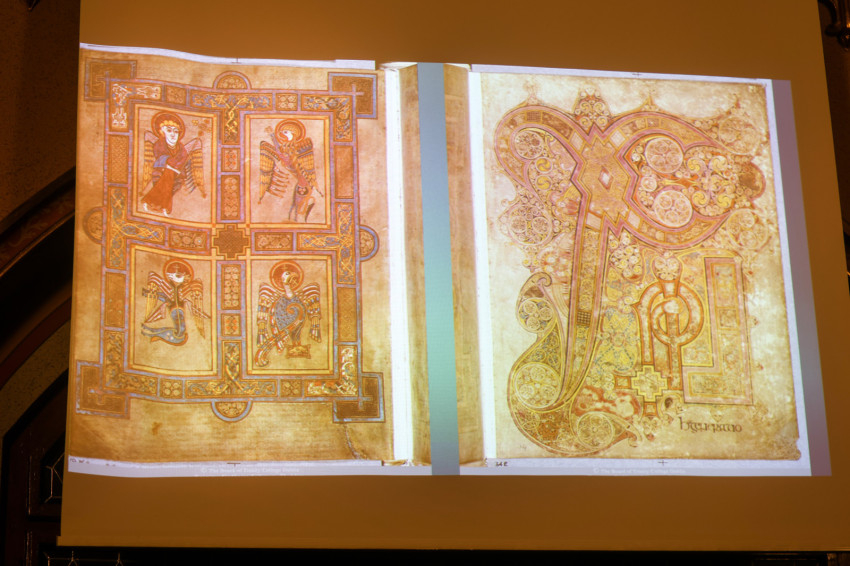 © The Board of Trinity College Dublin
h generatio
34 R
© The Board of Trinity College Dublin